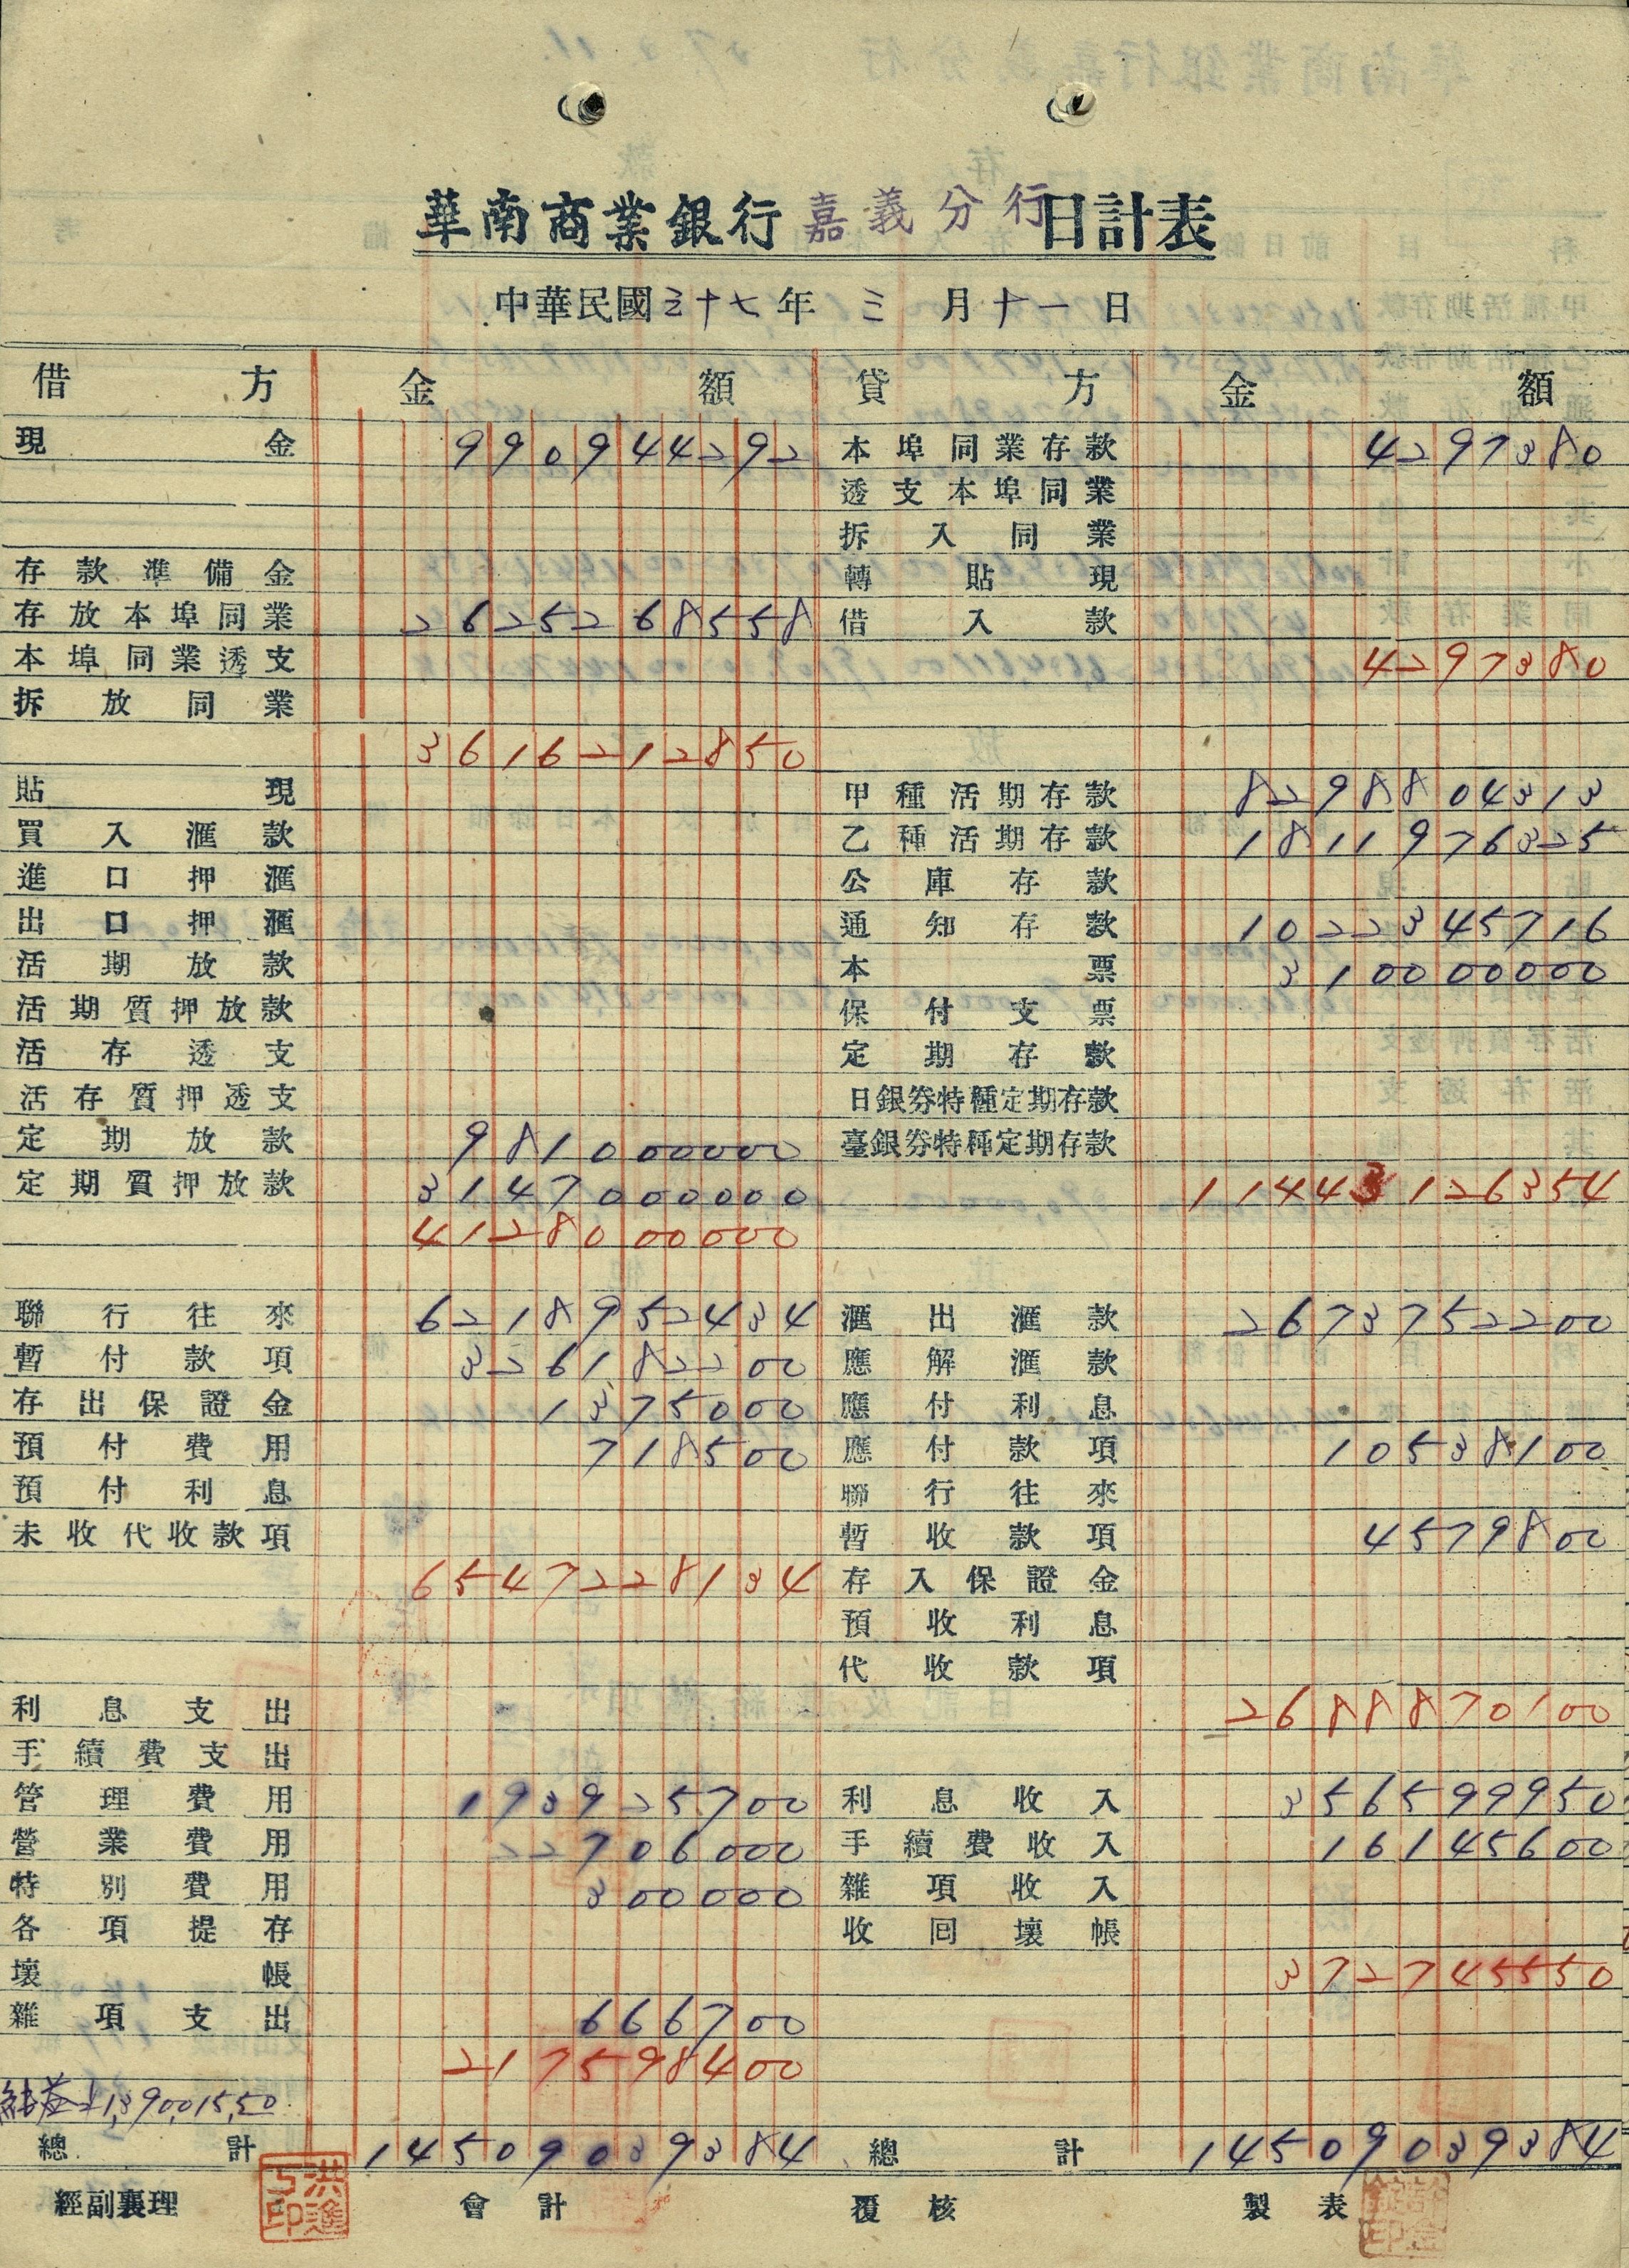 華南商業銀行嘉義分行日計表
中華民國三十七年三月十一日
借方 金額 貸方 金額
現金 990944292 本埠同業存款 4297380
透支本埠同業
拆入同業
存款準備金 轉貼現
存放本埠同業 2625268558 借入款
本埠同業透支 4297380
拆放同業
3616212850
貼現 甲種活期存款 8298804313
買入滙款 乙種活期存款 1811976325
進口押滙 公庫存款
出口押滙 通知存款 1022345716
活期放款 本票 310000000
活期質押放款 保付支票
活存透支 定期存款
活存質押透支 日銀券特種定期存款
定期放款 981000000 臺銀券特種定期存款
定期質押放款 3147000000 11443126354
4128000000
聯行往來 6218952434 滙出滙款 2673752200
暫付款項 326182200 應解滙款
存出保證金 1375000 應付利息
預付費用 718500 應付款項 10538100
預付利息 聯行往來
未收代收款項 暫收款項 4579800
6547228134 存入保證金
預收利息
代收款項
利息支出 2688870100
手續費支出
管理費用 193925700 利息收入 356599950
營業費用 22706000 手續費收入 16145600
特別費用 300000 雜項收入
各項提存 收回壞帳
壞帳 372745550
雜項支出 666700
217598400
結益
總計 14509039384 總計 14509039384
經副襄理 會計 覆核 製表